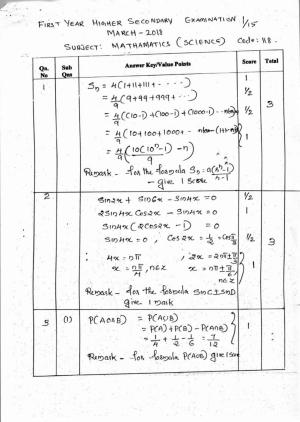 FIRST YEAR HIGHER SECONDARY EXAMINATION 1/15
MARCH-2018
SUBJECT: MATHAMATICS (SCIENCE) Code: 118.
Qn. No Sub Qns Answer Key/Value Points Score Total
1 Sn = 4(1+11+111+ - - - -) 1
= 4/9 (9+99+999+ ...) 1/2
= 4/9 ((10-1)+(100-1)+(1000-1) ...
= 4/9 (10+100+1000+ ... 1 3
= 4/9 (10(10^n-1)/9 - n) 1/2
Remark - for the formula Sn = a(r^n-1)/r-1
- give 1 score
2 sin2x + sin6x - sin4x = 0 1/2
2sin4x cos2x - sin4x = 0 1
sin4x (2cos2x - 1) = 0
sin4x = 0, cos2x = 1/2 = cos π/3 1/2 3
4x = nπ, 2x = 2nπ ± π/3
x = nπ/4, n∈Z x = nπ ± π/6, 1
n∈Z
Remark - for the formula sinC ± sinD
give 1 mark
3 (i) P(A or B) = P(A∪B)
= P(A)+P(B) - P(A∩B) 1
= 1/4 + 1/2 - 1/6 = 7/12
Remark - for formula P(A∪B) give 1 score